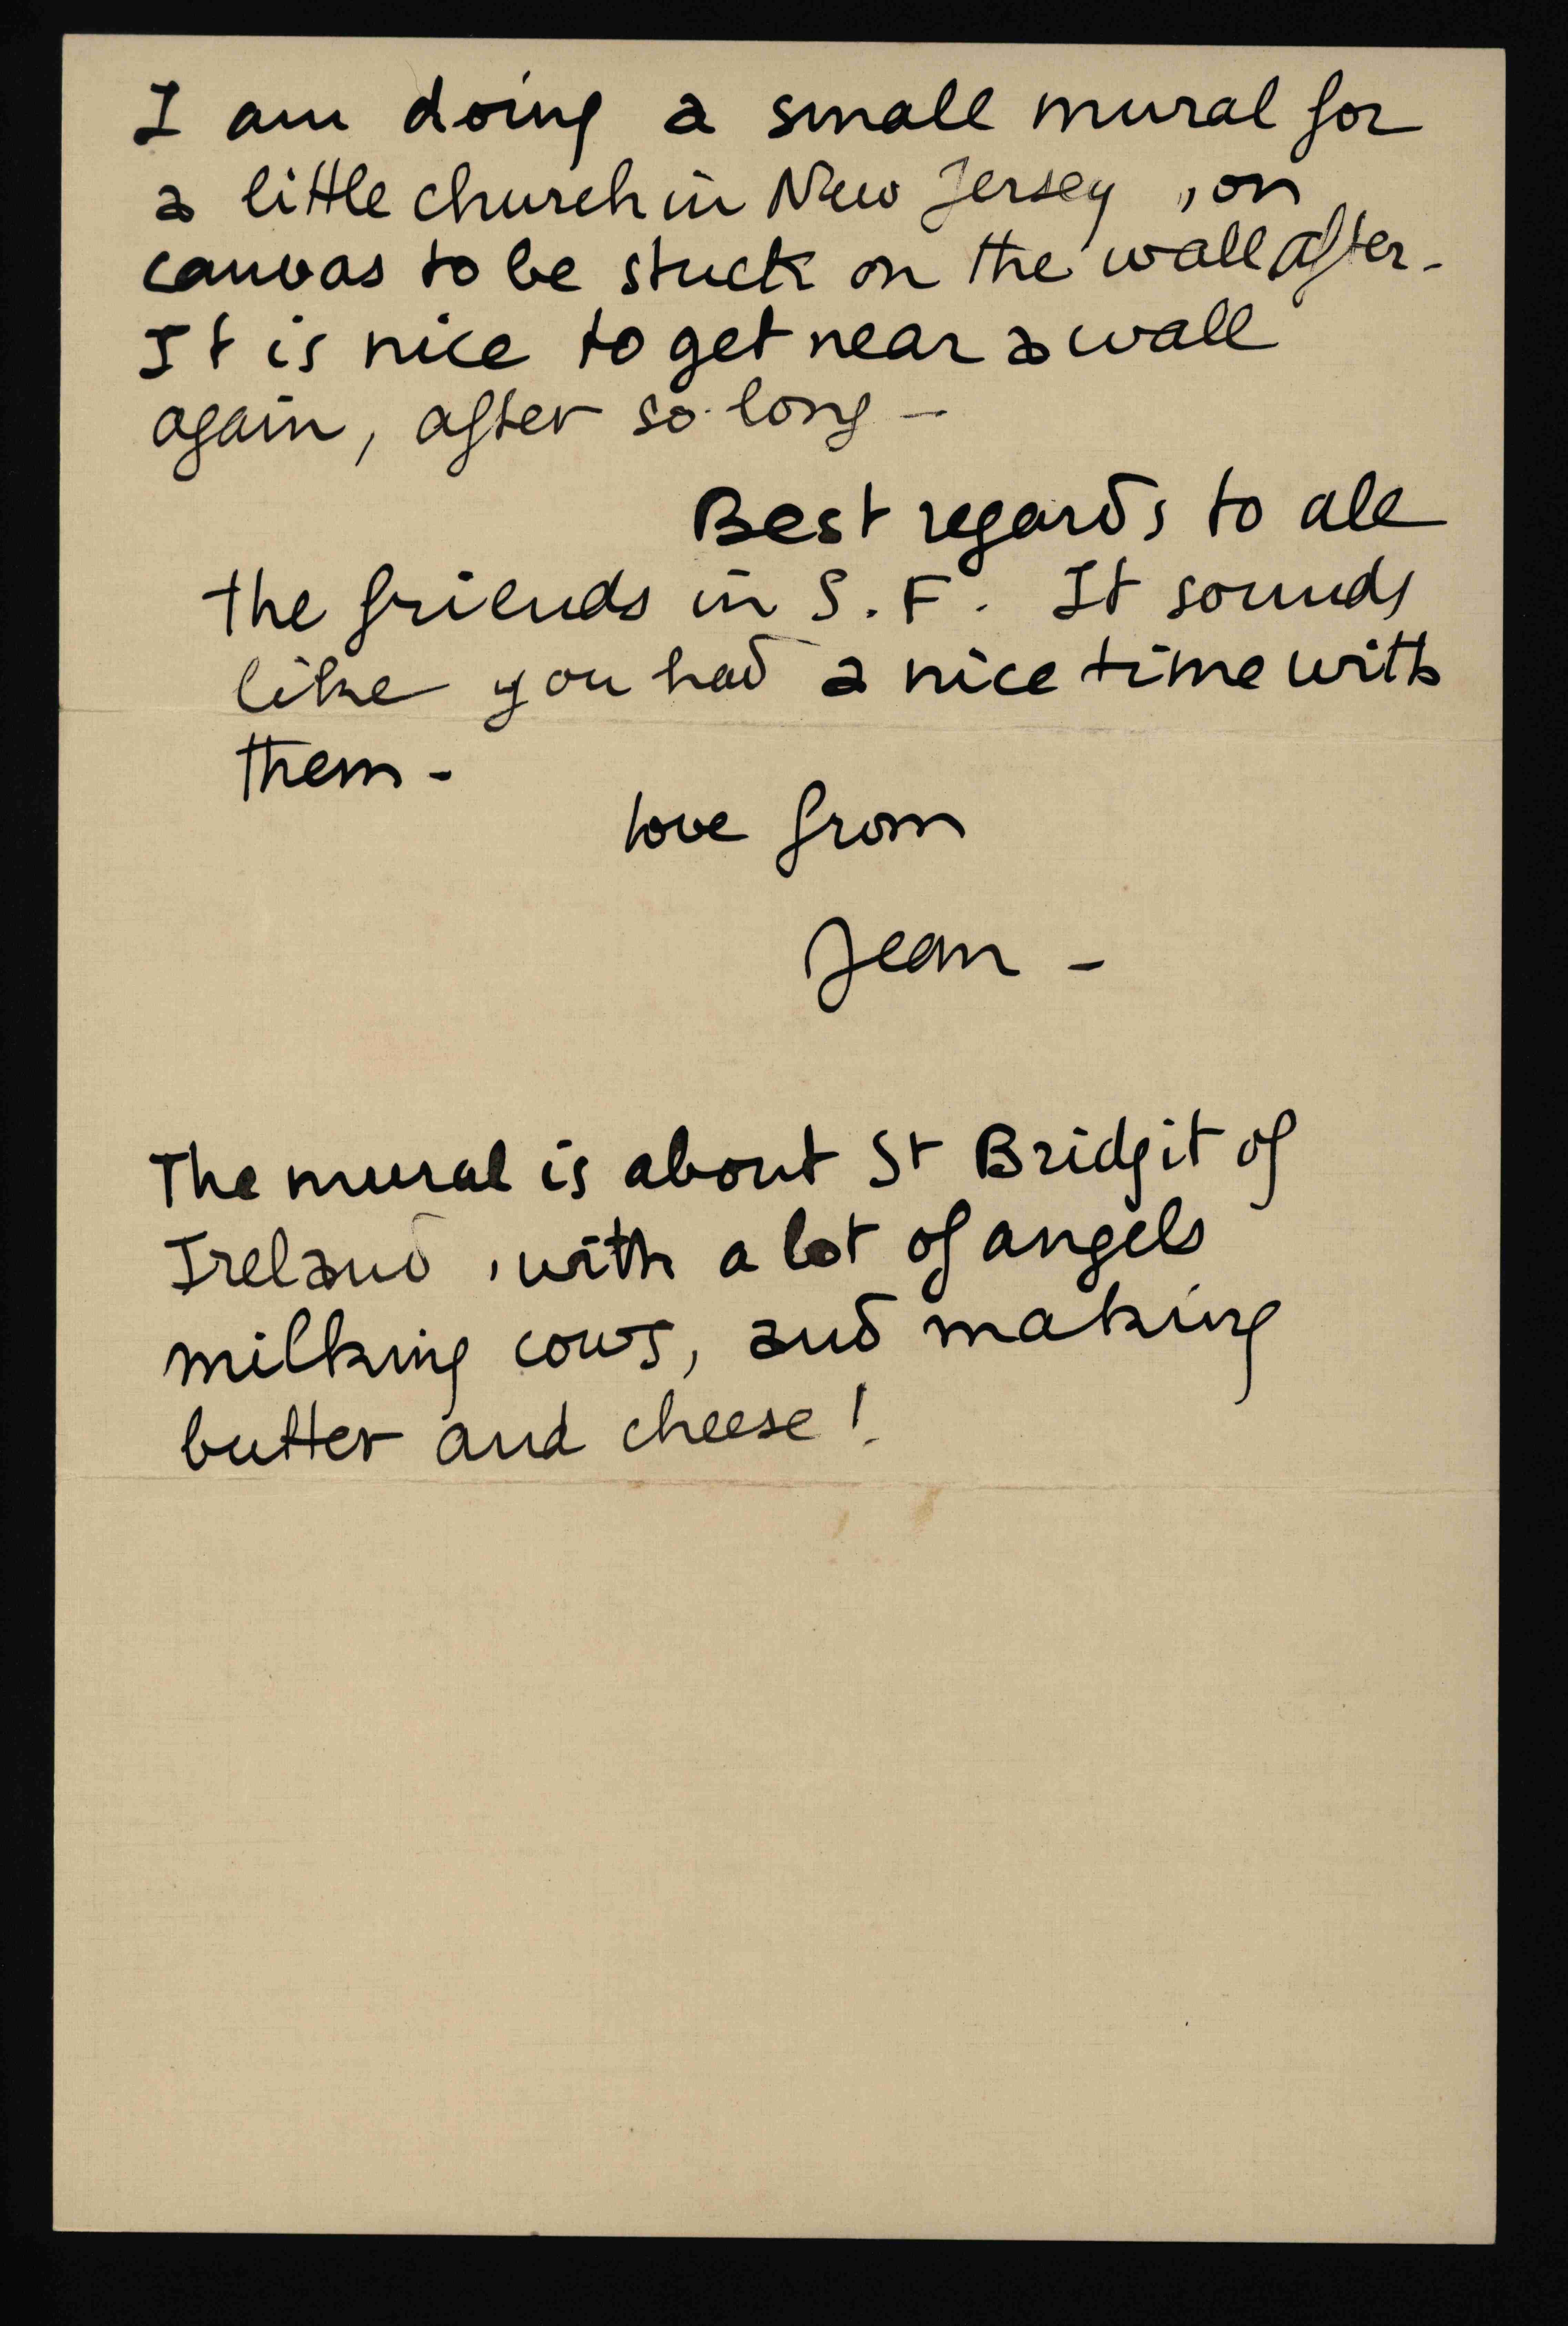 I am doing a small mural for
a little church in New Jersey, on
canvas to be stuck on the wall after-
It is nice to get near a wall
again, after so long -
Best regards to all
the friends in S.F. It sounds
like you had a nice time with
them -
love from
Jean -
The mural is about St Bridgit of
Ireland, with a lot of angels
milking cows, and making
butter and cheese!